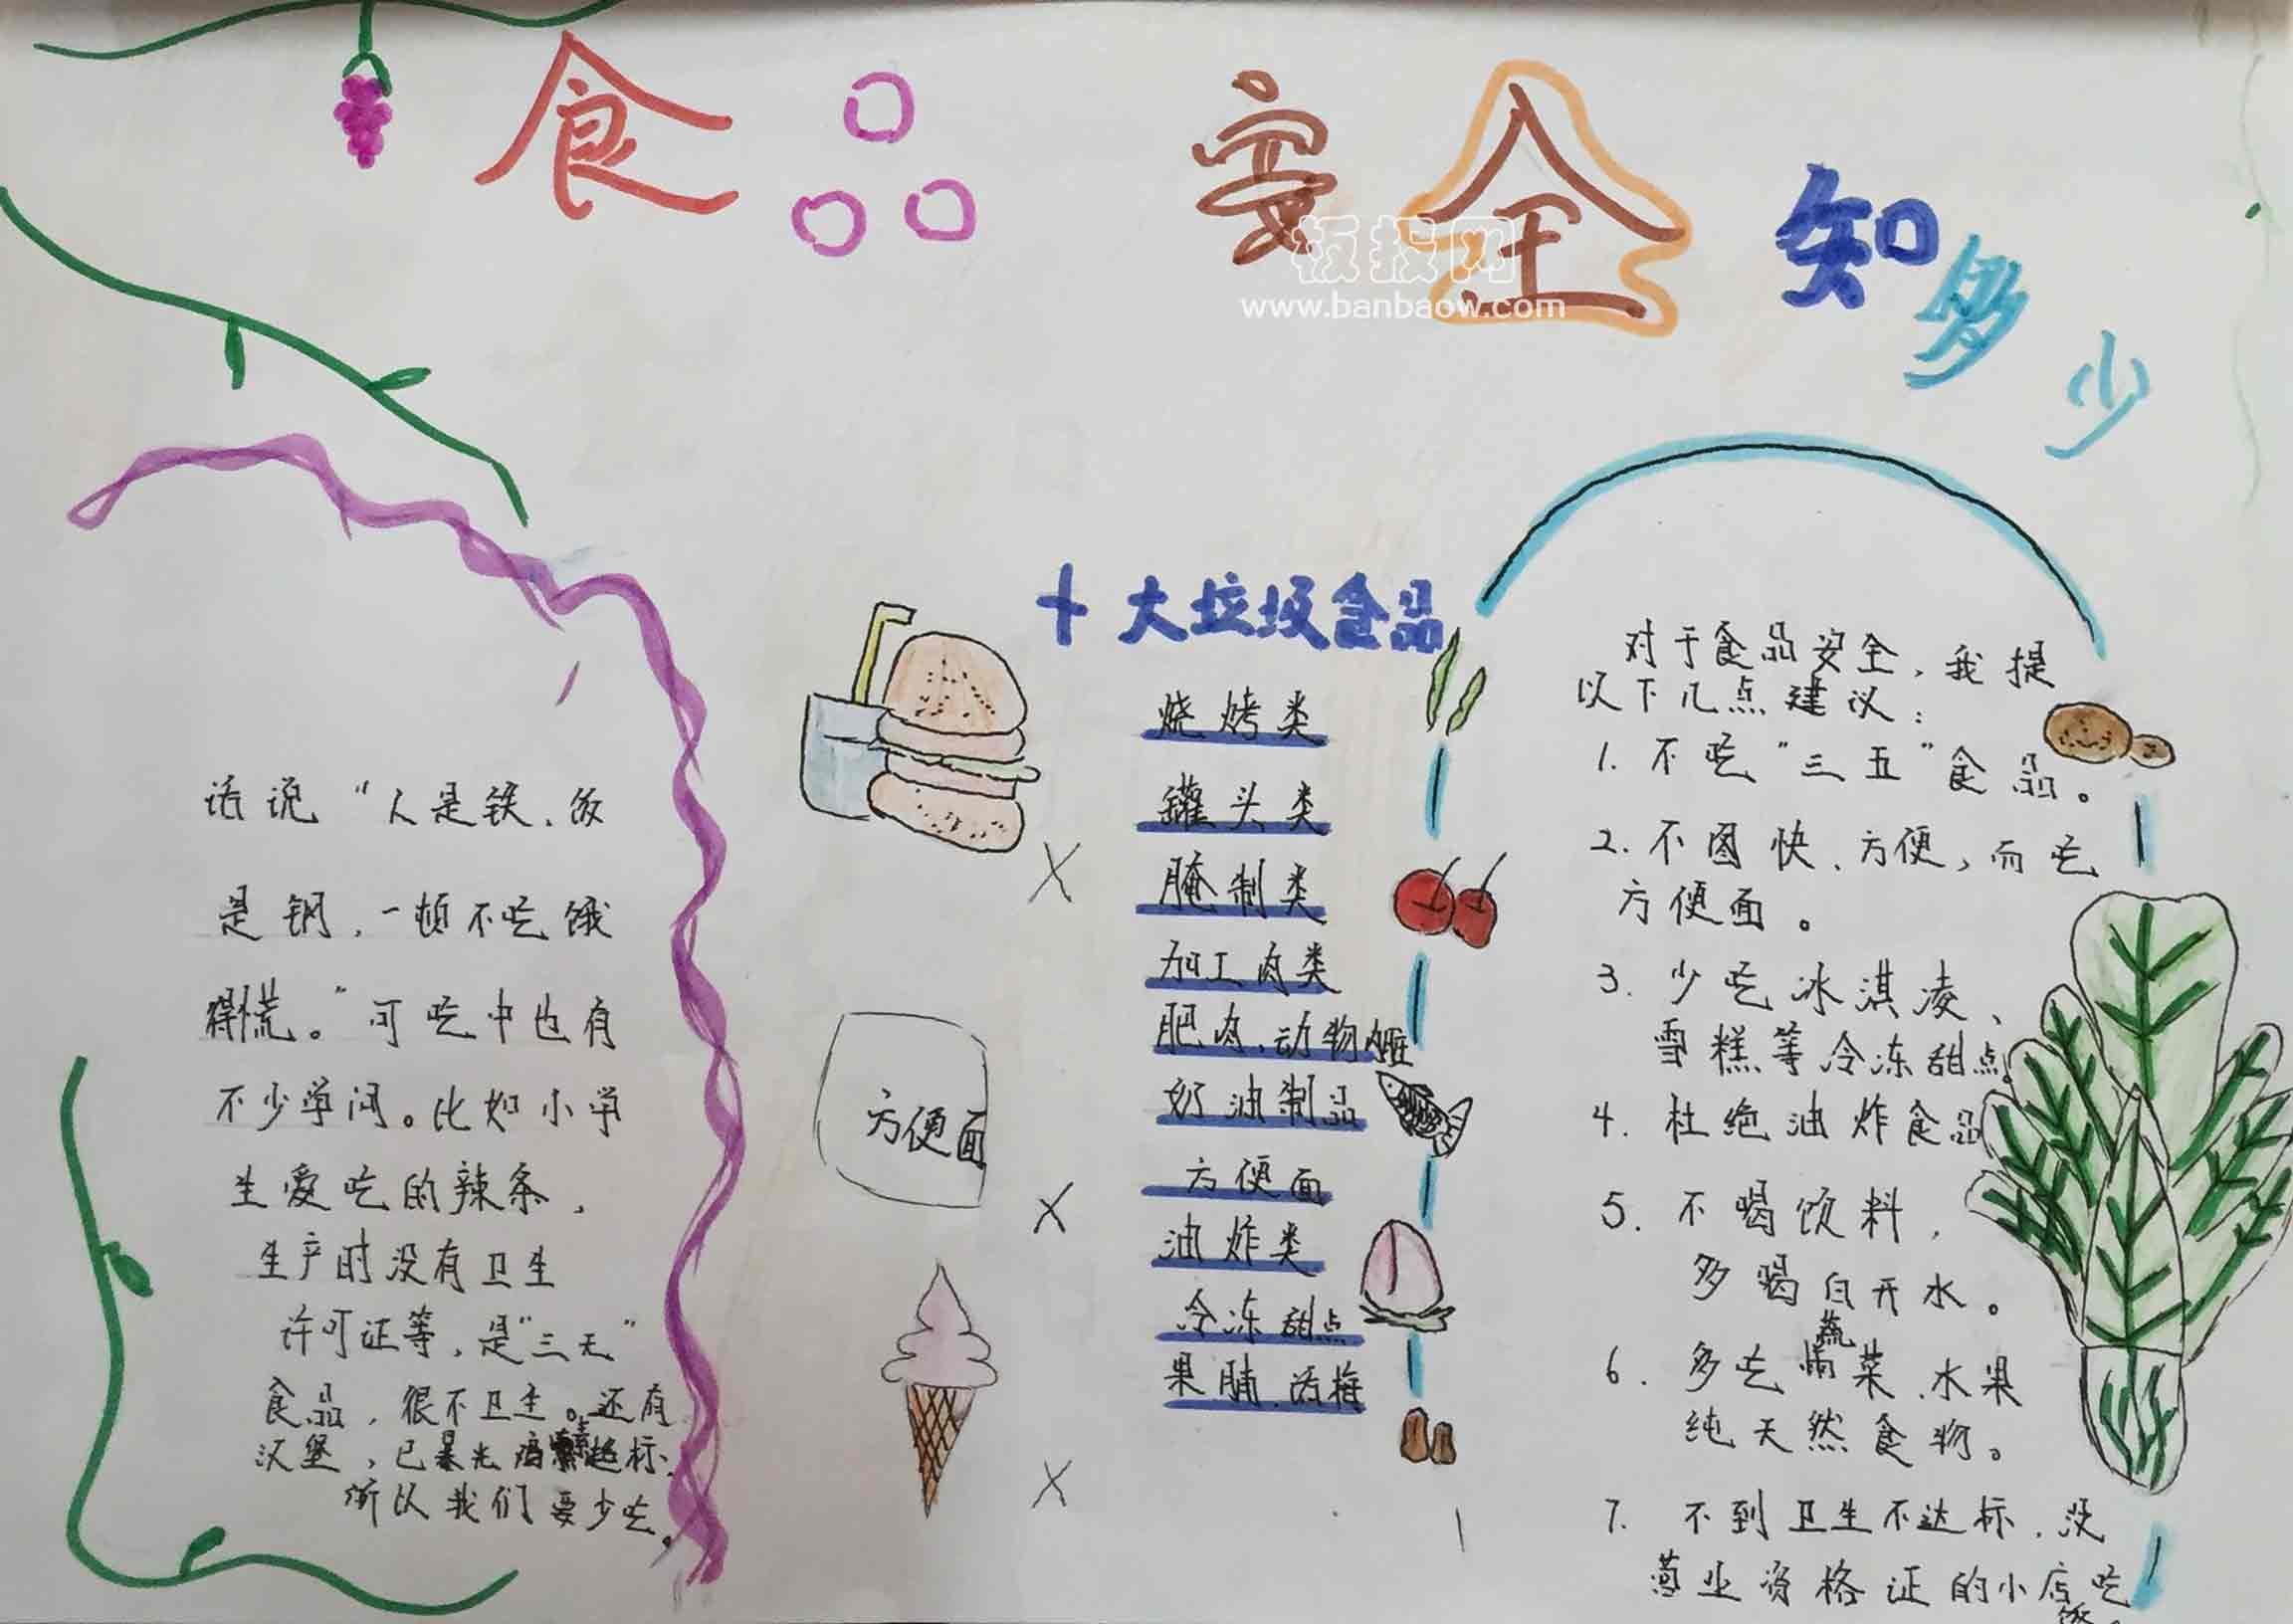 食品安全知多少
板报网
www.banbaow.com
话说“人是铁,饭
是钢,一顿不吃饿
得慌。”可吃中也有
不少学问。比如小学
生爱吃的辣条,
生产时没有卫生
许可证等,是“三无”
食品,很不卫生。还有
汉堡,已暴光 超标,
所以我们要少吃。
方便面
十大垃圾食品
烧烤类
罐头类
腌制类
加工肉类
肥肉、动物内脏
奶油制品
方便面
油炸类
冷冻甜点
果脯、话梅
对于食品安全,我提
以下几点建议:
1. 不吃“三五”食品。
2. 不图快、方便,而吃
方便面。
3. 少吃冰淇凌、
雪糕等冷冻甜点。
4. 杜绝油炸食品
5. 不喝饮料,
多喝白开水。
6. 多吃蔬菜、水果
纯天然食物。
7. 不到卫生不达标,没
营业资格证的小店吃
饭。